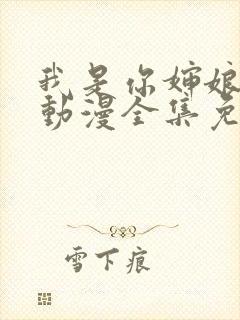 我是你婶娘
動漫全集免
雪下痕